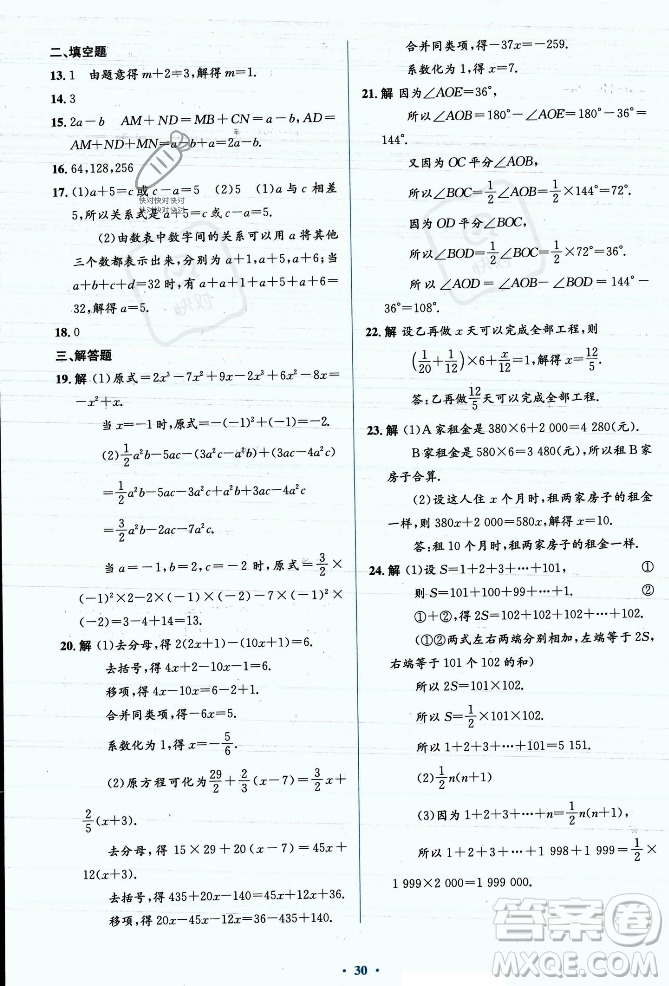 二、填空题
13. 1 由题意得 m+2=3,解得 m=1.
14. 3
15. 2a-b AM+ND=MB+CN=a-b,AD=
AM+ND+MN=a+a-b=2a-b.
16. 64,128,256
17. (1)a+5=c 或 c-a=5 (2)5 (1)a 与 c 相差
5,所以关系式是 a+5=c 或 c-a=5.
(2)由数表中数字间的关系可以用 a 将其他
三个数都表示出来,分别为 a+1,a+5,a+6;当
a+b+c+d=32 时,有 a+a+1+a+5+a+6=
32,解得 a=5.
18. 0
三、解答题
19. 解 (1)原式=2x³-7x²-7x+6x²-2x³+6x-8x=
当 x=-1 时,原式=-1-1=-2.
当 a=-1,b=-2,c=2 时,原式=3/2×
(-1)²×(-2)-2×(-1)×2-7×(-1)²×
2=-3+4-14=-13.
20. 解 (1)去分母,得 2(2x+1)-(10x+1)=6.
去括号,得 4x+2-10x-1=6.
移项,得 4x-10x=6-2+1.
合并同类项,得-6x=5.
系数化为 1,得 x=-5/6.
(2)原方程可化为 29/2+2/3(x-7)=3/2x+
2/5(x+3).
去分母,得 15×29+20(x-7)=45x+
12(x+3).
去括号,得 435+20x-140=45x+12x+36.
移项,得 20x-45x-12x=36-435+140.
合并同类项,得-37x=-259.
系数化为 1,得 x=7.
21. 解 因为∠AOE=36°,
所以∠AOB=180°-∠AOE=180°-36°=
144°.
又因为 OC 平分∠AOB,
所以∠BOC=1/2∠AOB=1/2×144°=72°.
因为 OD 平分∠BOC,
所以∠BOD=1/2∠BOC=1/2×72°=36°.
所以∠AOD=∠AOB-∠BOD=144°-
36°=108°.
22. 解 设乙再做 x 天可以完成全部工程,则
(1/20+1/12)×6+x/12=1,解得 x=12/5.
答:乙再做12/5天可以完成全部工程.
23. 解 (1)A 家租金是 380×6+2 000=4 280(元).
B 家租金是 580×6=3 480(元),所以租 B 家
房子合算.
(2)设这人住 x 个月时,租两家房子的租金
一样,则 380x+2 000=580x,解得 x=10.
答:租 10 个月时,租两家房子的租金一样.
24. 解 (1)设 S=1+2+3+…+101, ①
则 S=101+100+99+…+1, ②
①+②,得 2S=102+102+102+…+102.
(①②两式左右两端分别相加,左端等于 2S,
右端等于 101 个 102 的和)
所以 2S=101×102.
所以 S=1/2×101×102.
所以 1+2+3+…+101=5 151.
(2)1/2n(n+1)
(3)因为 1+2+3+…+n=1/2n(n+1),
所以 1+2+3+…+1 998+1 999=1/2×
1 999×2 000=1 999 000.
30
快对快对快对
快对快对快对
快对
快对
答案圈